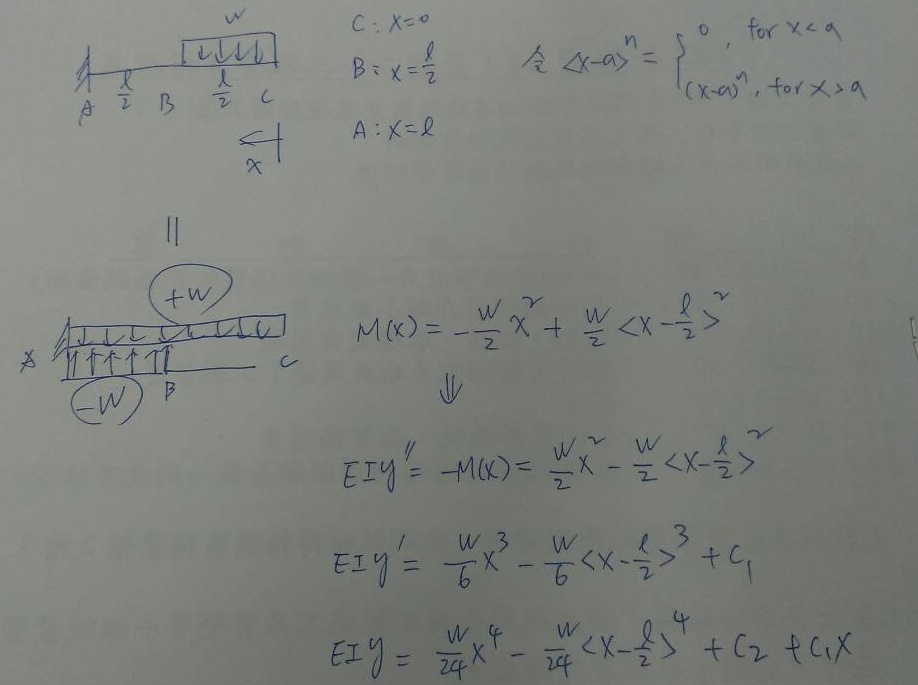 W
A l/2 B l/2 C
x
C: x=0
B: x=l/2
A: x=l
令 <x-a>ⁿ = { 0, for x<a
(x-a)ⁿ, for x>a
||
+W
A B C
-W
M(x) = -W/2 x² + W/2 <x-l/2>²
⇓
EIy″ = -M(x) = W/2 x² - W/2 <x-l/2>²
EIy′ = W/6 x³ - W/6 <x-l/2>³ + C₁
EIy = W/24 x⁴ - W/24 <x-l/2>⁴ + C₂ + C₁x